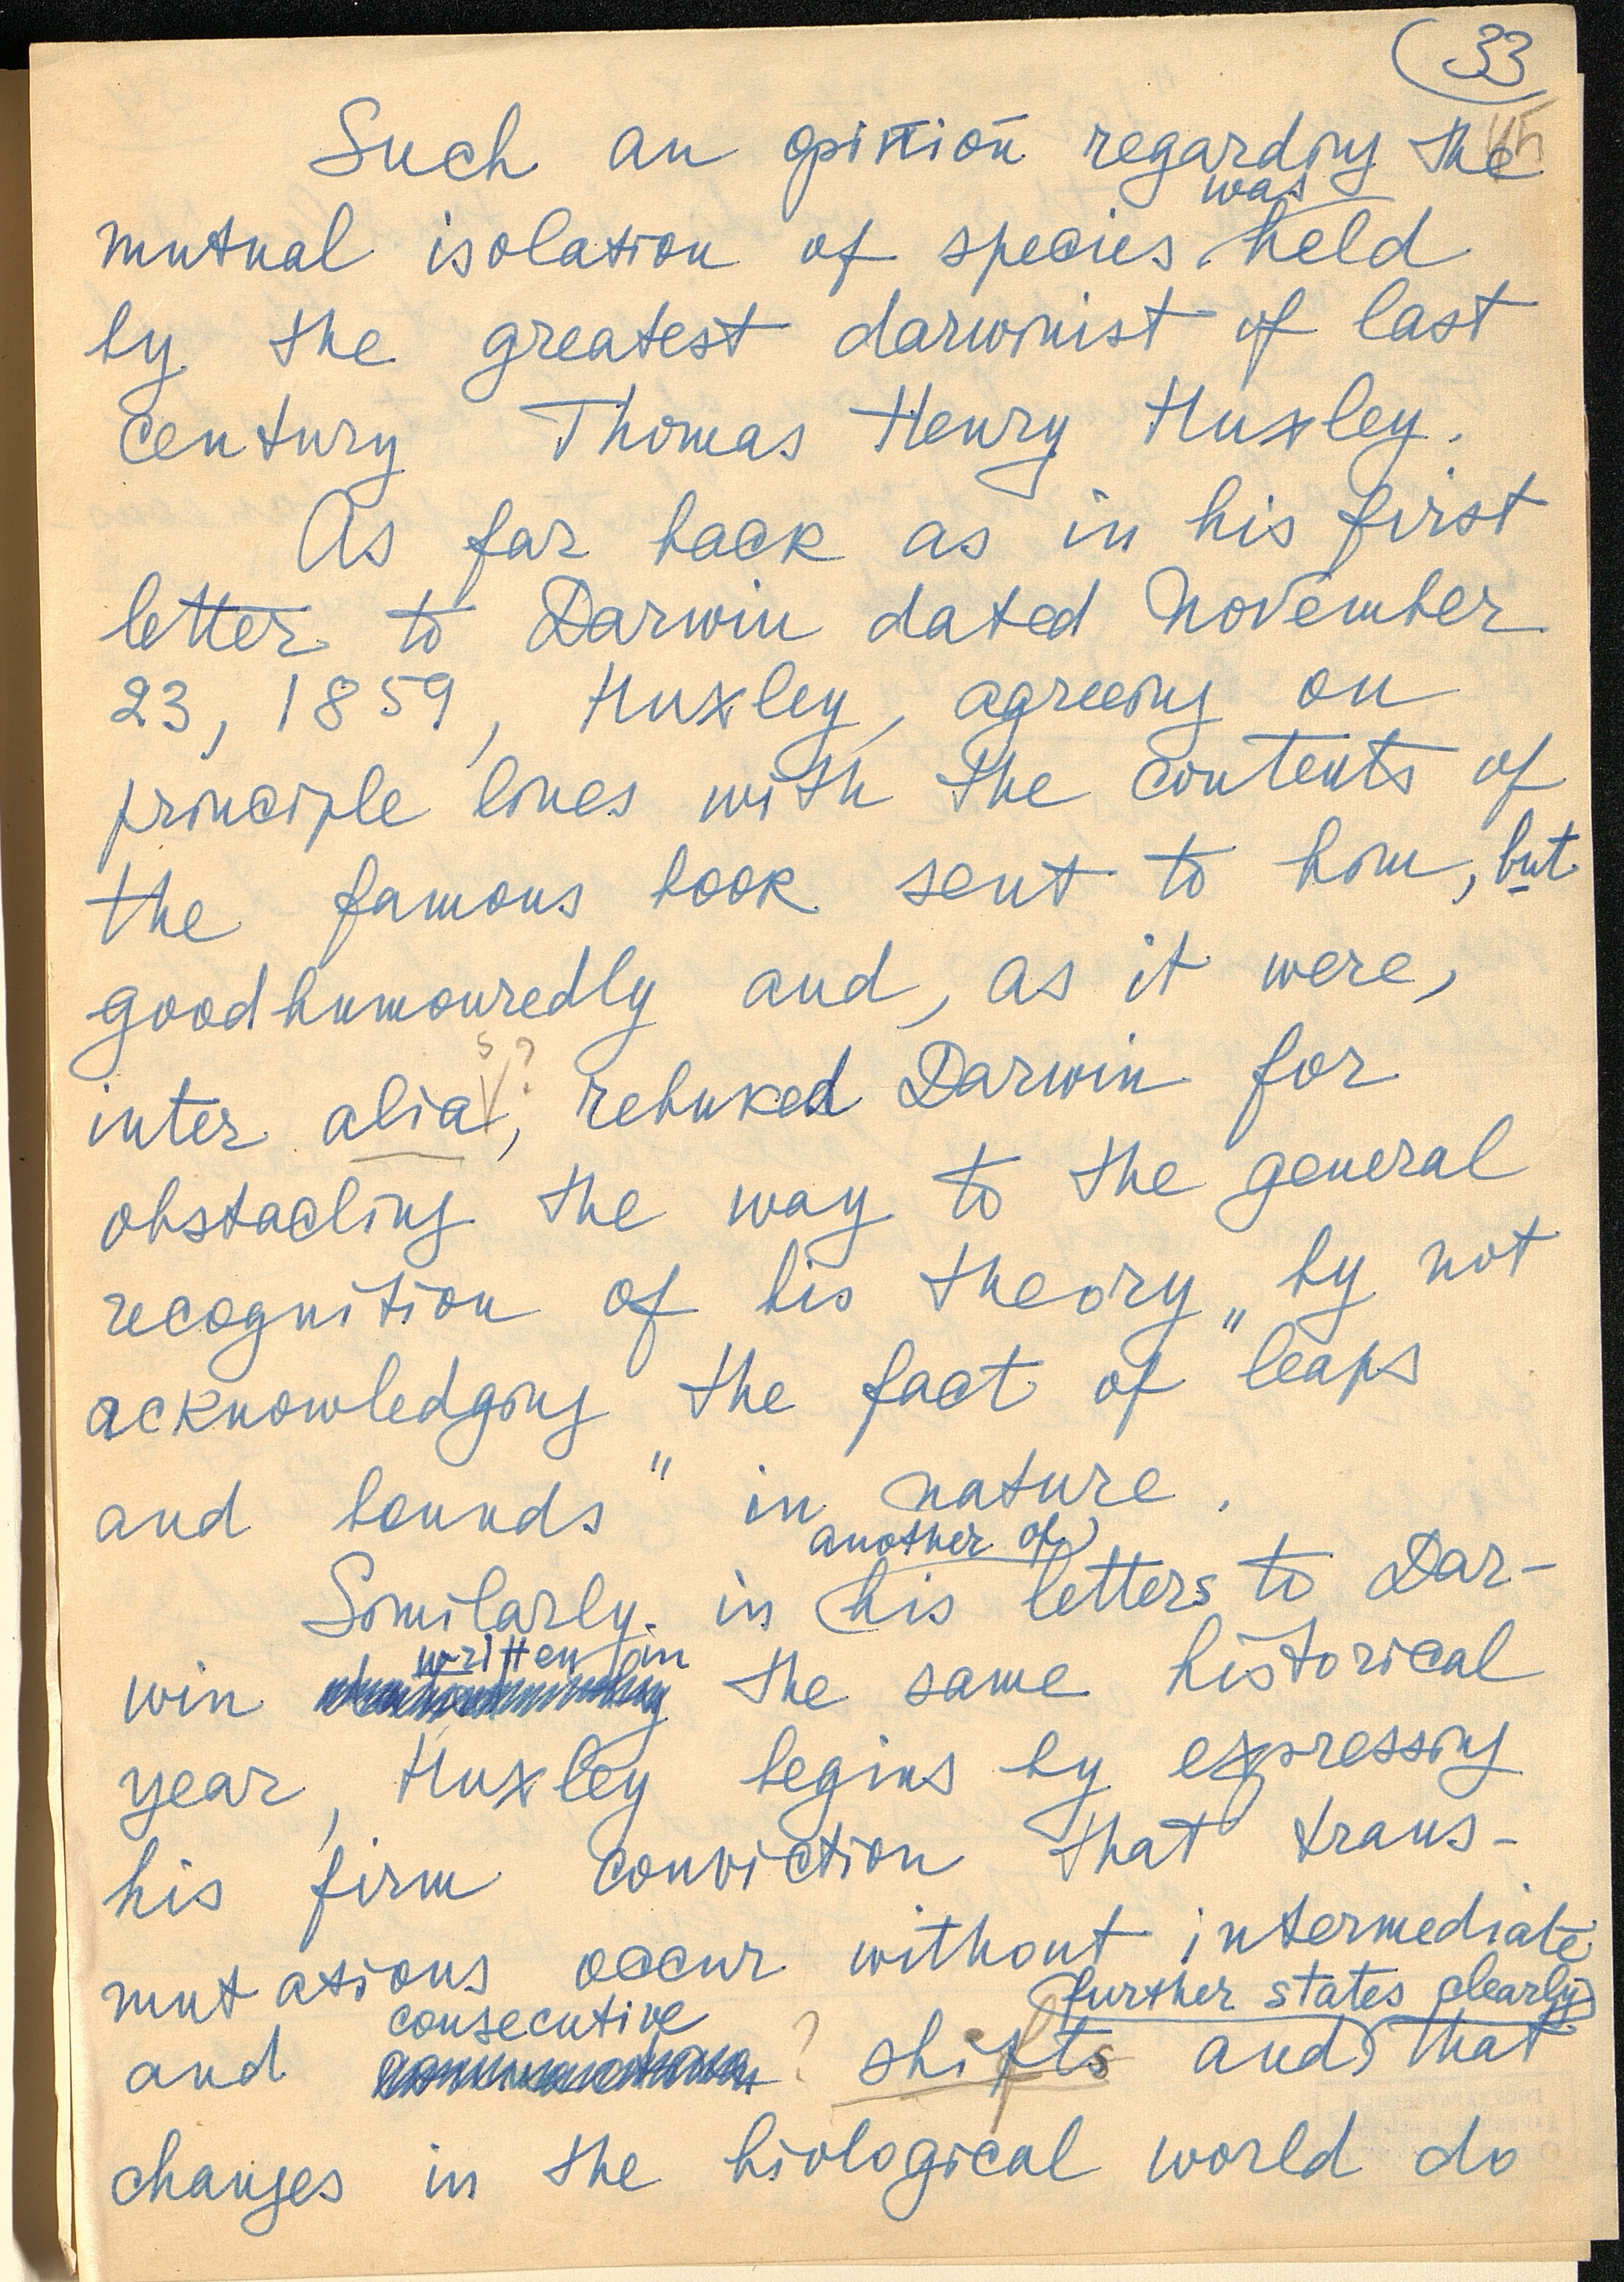 33
Such an opinion regarding the
was
mutual isolation of species held
by the greatest darwinist of last
century Thomas Henry Huxley.
As far back as in his first
letter to Darwin dated November
23, 1859, Huxley, agreeing on
principle lines with the contents of
the famous book sent to him, but
goodhumouredly and, as it were,
s ?
inter alia, rebuked Darwin for
obstacling the way to the general
recognition of his theory „by not
acknowledging the fact of "leaps
and bounds" in nature.
another of
Similarly in his letters to Dar-
written in
win the same historical
year, Huxley begins by expressing
his firm conviction that trans-
mutations occur without intermediate
consecutive further states clearly
and ? shifts and that
changes in the biological world do